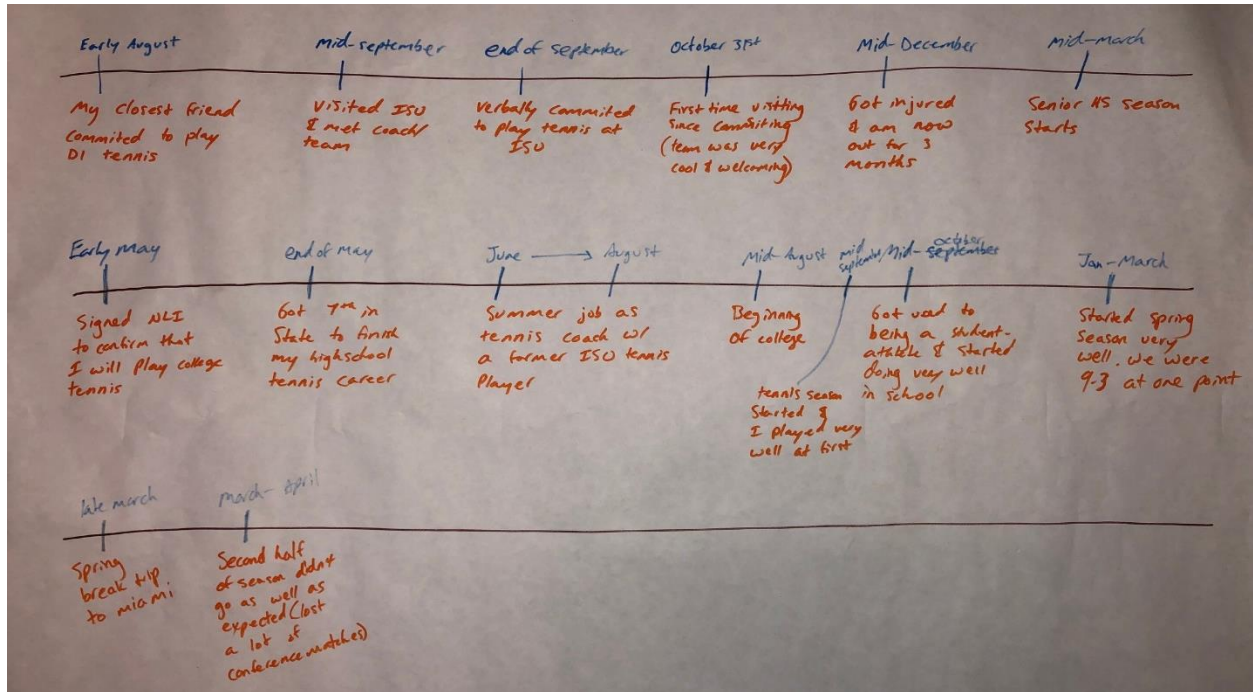 Early August
My closest friend
commited to play
D1 tennis
Mid-september
Visited ISU
& met coach/
team
end of september
Verbally commited
to play tennis at
ISU
October 31st
First time visiting
since commiting
(team was very
cool & welcoming)
Mid-December
Got injured
& am now
out for 3
months
Mid-march
Senior HS season
starts
Early may
Signed NLI
to confirm that
I will play college
tennis
end of may
Got 7th in
State to finish
my highschool
tennis career
June → August
Summer job as
tennis coach w/
a former ISU tennis
Player
Mid-August
Beginning
of college
mid
september
tennis season
Started &
I played very
well at first
october
Mid-september
Got used to
being a student-
athlete & started
doing very well
in school
Jan-March
Started spring
season very
well. we were
9-3 at one point
late march
Spring
break trip
to miami
march-April
Second half
of season didn't
go as well as
expected (lost
a lot of
conference matches)